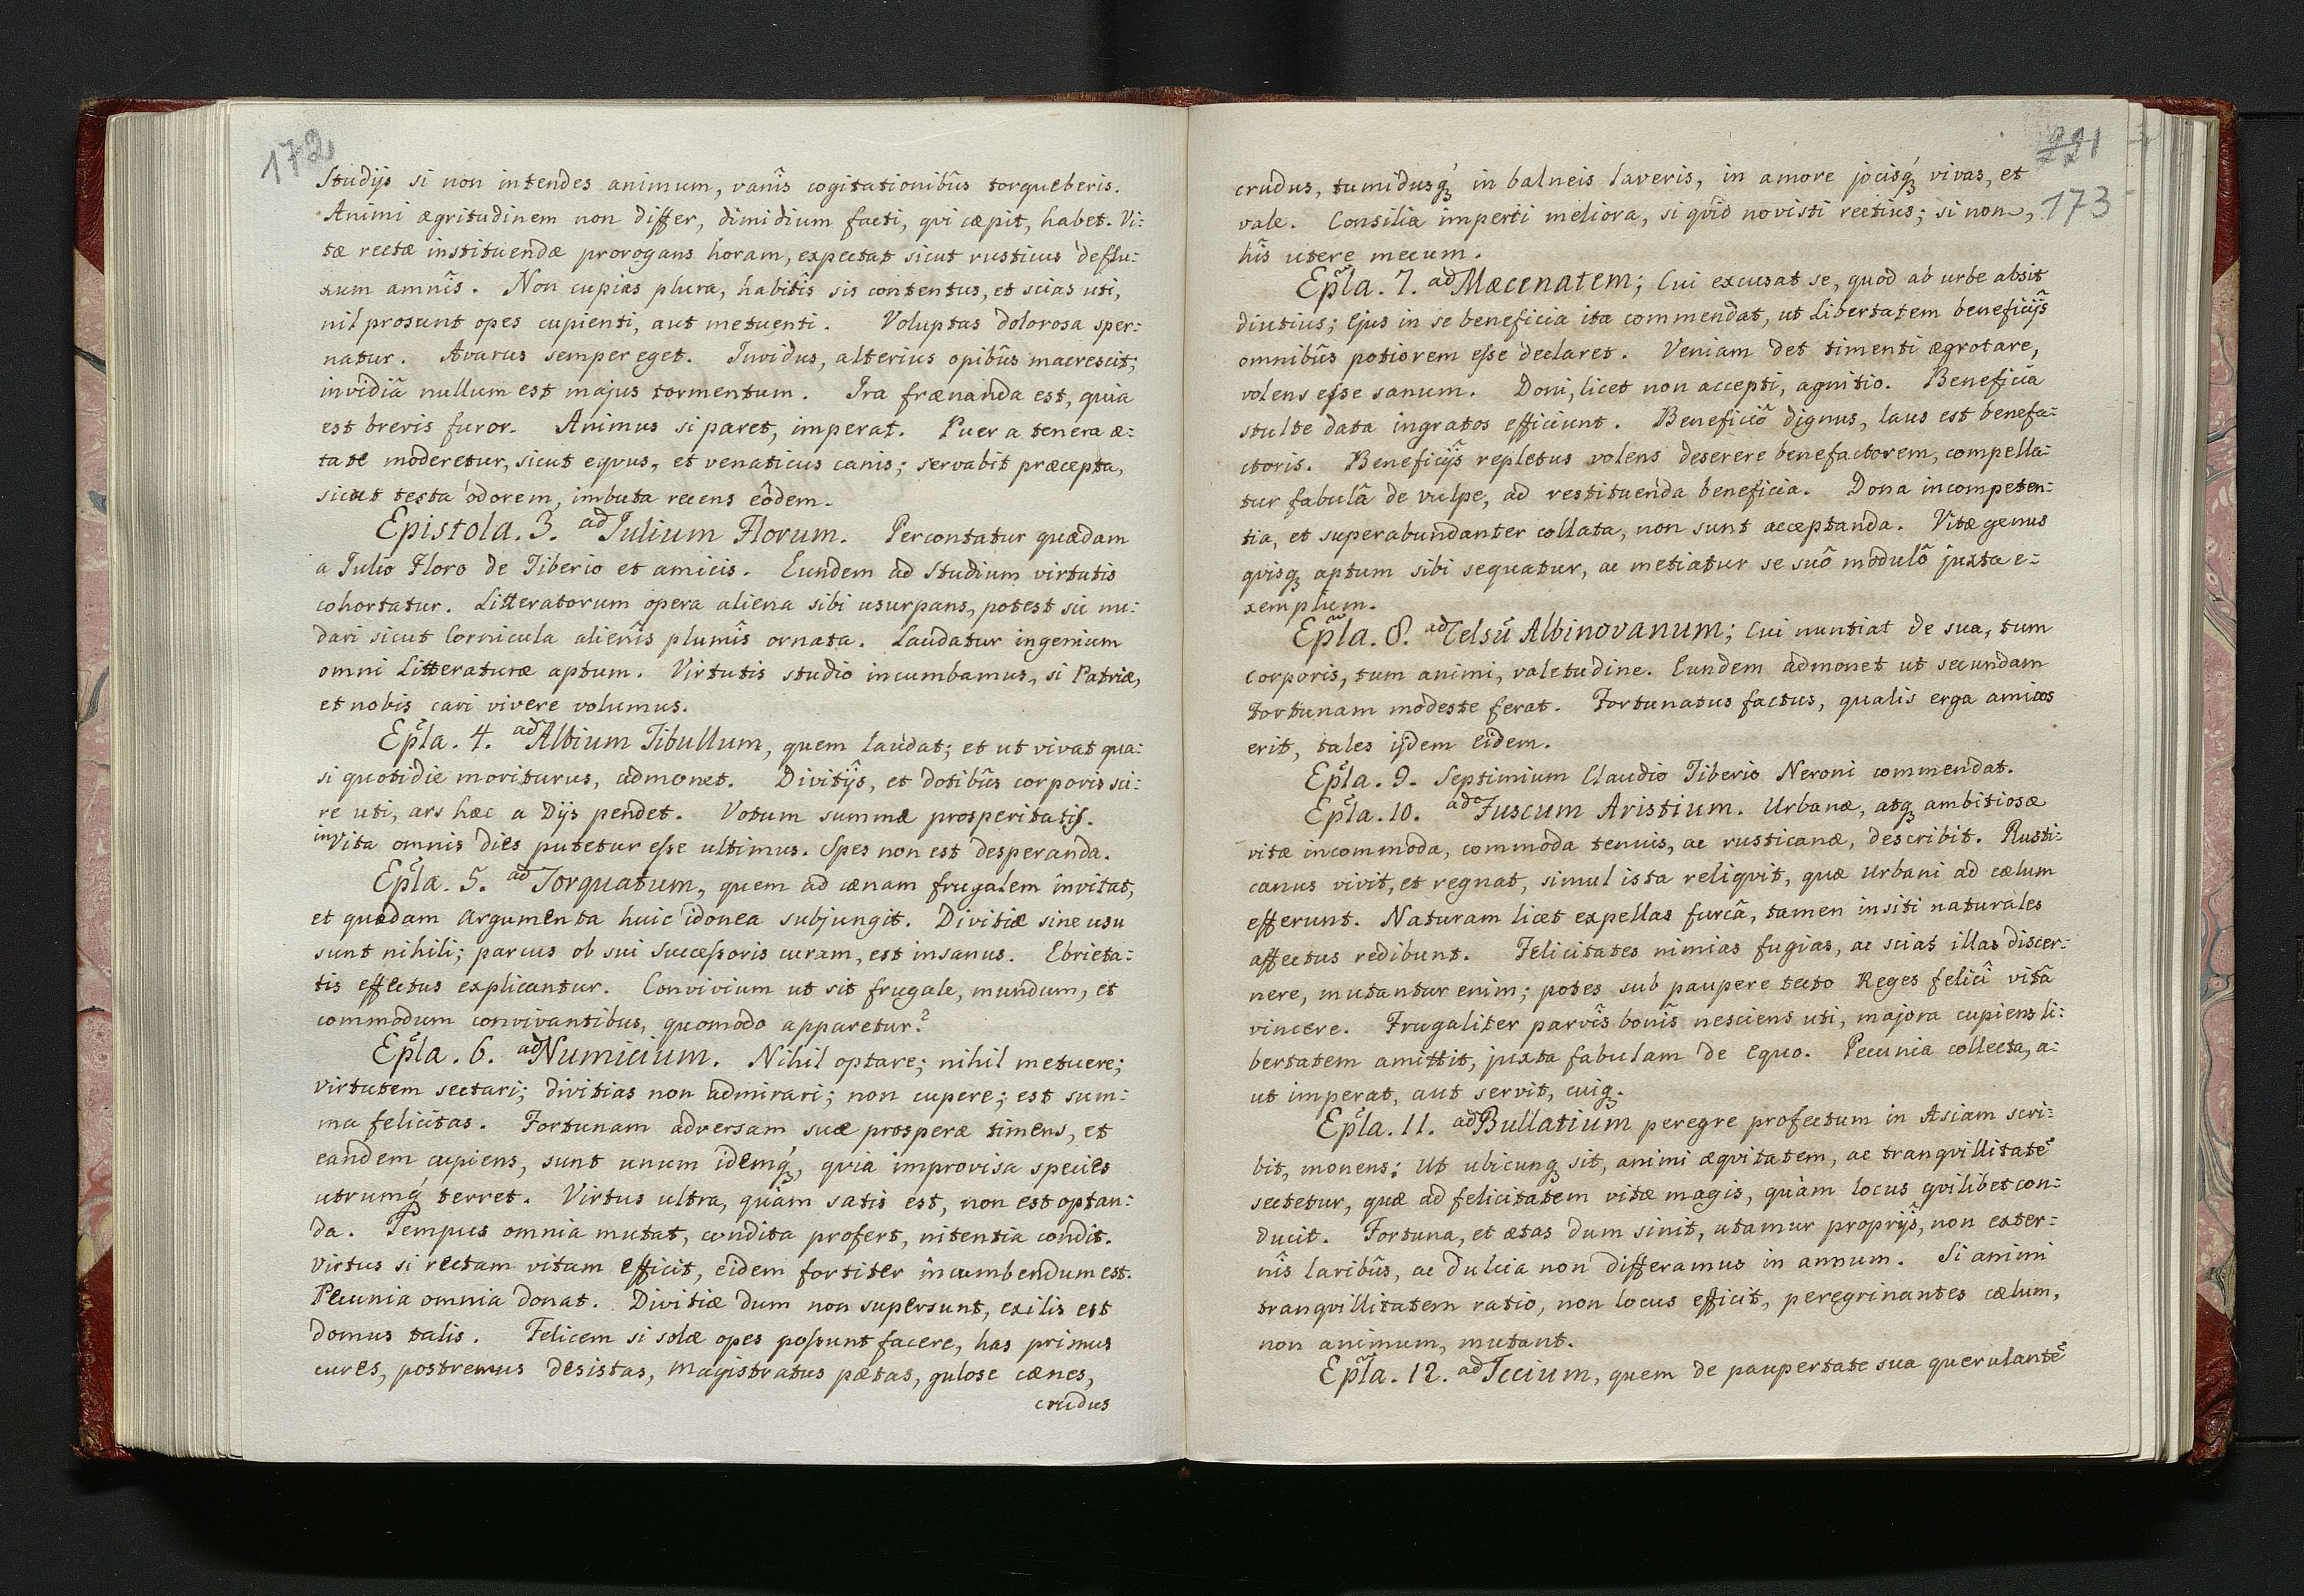 172
Studijs si non intendes animum, vanîs cogitationibûs torqueberis.
Animi ægritudinem non differ, dimidium facti, qvi cæpit, habet. Vi:
tæ rectæ instituendæ prorogans horam, expectat sicut rusticus deflu:
xum amnîs. Non cupias plura, habitîs sis contentus, et scias uti,
nil prosunt opes cupienti, aut metuenti. Voluptas dolorosa sper:
natur. Avarus semper eget. Invidus, alterius opibûs macrescit;
invidiâ nullum est majus tormentum. Ira frænanda est, quia
est brevis furor. Animus si paret, imperat. Puer a tenera æ:
tate moderetur, sicut eqvus, et venaticus canis; servabit præcepta,
sicut testa odorem, imbuta recens eôdem.
Epistola. 3. ad Julium Florum. Percontatur quædam
a Julio Floro de Tiberio et amicis. Eundem ad studium virtutis
cohortatur. Litteratorum opera aliena sibi usurpans, potest sic nu:
dari sicut Cornicula alienîs plumîs ornata. Laudatur ingenium
omni Litteraturæ aptum. Virtutis studio incumbamus, si Patriæ,
et nobis cari vivere volumus.
Epl̃a. 4. ad Albium Tibullum, quem laudat; et ut vivat qua:
si quotidie moriturus, admonet. Divitijs, et dotibûs corporis sci:
re uti, ars hæc a Dijs pendet. Votum summæ prosperitatis.
in Vita omnis dies putetur esse ultimus. Spes non est desperanda.
Epl̃a. 5. ad Torquatum, quem ad cænam frugalem invitat,
et quædam argumenta huic idonea subjungit. Divitiæ sine usu
sunt nihili; parcus ob sui successoris curam, est insanus. Ebrieta:
tis effectus explicantur. Convivium ut sit frugale, mundum, et
commodum convivantibus, quomodo apparetur?
Epl̃a. 6. ad Numicium. Nihil optare; nihil metuere;
virtutem sectari; divitias non admirari; non cupere; est sum:
ma felicitas. Fortunam adversam suæ prosperæ timens, et
eandem cupiens, sunt unum idemq́ꝫ, qvia improvisa species
utrumq́ꝫ terret. Virtus ultra, quàm satis est, non est optan:
da. Tempus omnia mutat, condita profert, nitentia condit.
Virtus si rectam vitam efficit, eidem fortiter incumbendum est.
Pecunia omnia donat. Divitiæ dum non supersunt, exilis est
domus talis. Felicem si solæ opes possunt facere, has primus
cures, postremus desistas, Magistratus pætas, gulose cænes,
crudus
221
173
crudus, tumidusq́ꝫ in balneis laveris, in amore jocisq́ꝫ vivas, et
vale. Consilia imperti meliora, si qvid novisti rectius; si non,
hîs utere mecum.
Epl̃a. 7. ad Mæcenatem; Cui excusat se, quod ab urbe absit
diutius; Ejus in se beneficia ita commendat, ut Libertatem beneficijs
omnibûs potiorem esse declaret. Veniam det timenti ægrotare,
volens esse sanum. Doni, licet non accepti, agnitio. Beneficia
stulte data ingratos efficiunt. Beneficiô dignus, laus est benefa:
ctoris. Beneficijs repletus volens deserere benefactorem, compella:
tur fabulâ de vulpe, ad restituenda beneficia. Dona incompeten:
tia, et superabundanter collata, non sunt acceptanda. Vitæ genus
qvisqꝫ aptum sibi sequatur, ac metiatur se suô modulô juxta e:
xemplum.
Epl̃a. 8. ad Celsũ Albinovanum; Cui nuntiat de sua, tum
corporis, tum animi, valetudine. Eundem admonet ut secundam
fortunam modeste ferat. Fortunatus factus, qualis erga amicos
erit, tales ijdem eidem.
Epl̃a. 9. Septimium Claudio Tiberio Neroni commendat.
Epl̃a. 10. ad Fuscum Aristium. Urbanæ, atqꝫ ambitiosæ
vitæ incommoda, commoda tenuis, ac rusticanæ, describit. Rusti:
canus vivit, et regnat, simul ista reliqvit, quæ Urbani ad cælum
efferunt. Naturam licet expellas furcâ, tamen insiti naturales
affectus redibunt. Felicitates nimias fugias, ac scias illas discer:
nere, mutantur enim; potes sub paupere tecto Reges felicî vitâ
vincere. Frugaliter parvîs bonîs nesciens uti, majora cupiens li:
bertatem amittit, juxta fabulam de Equo. Pecunia collecta, a:
ut imperat, aut servit, cuiqꝫ.
Epl̃a. 11. ad Bullatium peregre profectum in Asiam scri:
bit, monens; Ut ubicunqꝫ sit, animi æqvitatem, ac tranqvillitatẽ
sectetur, quæ ad felicitatem vitæ magis, quàm locus qvilibet con:
ducit. Fortuna, et ætas dum sinit, utamur proprijs, non exter:
nîs laribûs, ac dulcia non differamus in annum. Si animi
tranqvillitatem ratio, non locus efficit, peregrinantes cælum,
non animum, mutant.
Epl̃a. 12. ad Iccium, quem de paupertate sua querulantẽ